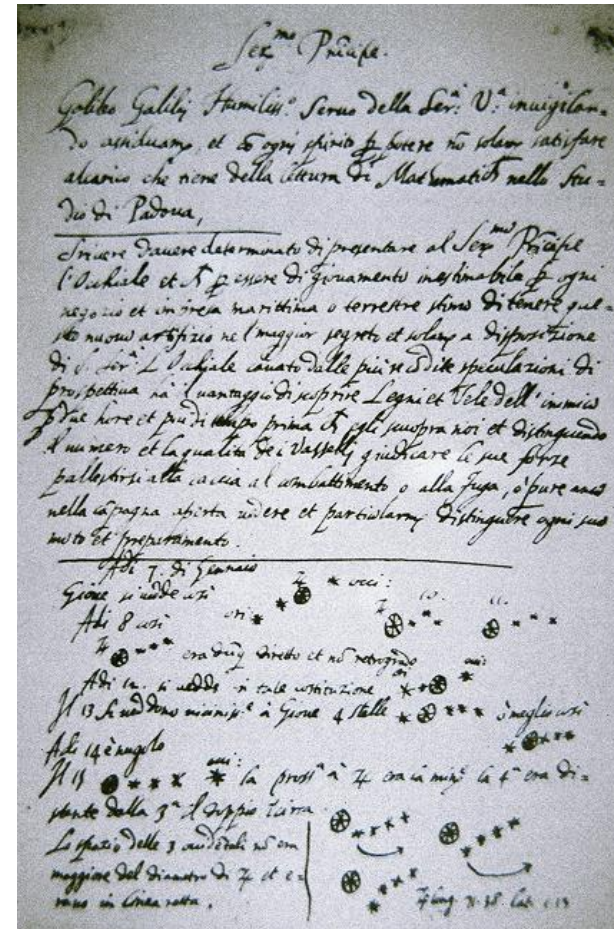 Ser.mo Principe.
Galileo Galilej Humiliss.o Servo della Ser.a V.a invigilan-
do assiduam.te, et co ogni spirito p potere no solam satisfare
alcarico che tiene della lettura di Mathematich nello Stu-
dio di Padova,
Scrivere davere determinato di presentare al Ser.mo Principe
l'Ochiale et p essere di giovamento inestimabile p ogni
negozio et impresa marittima o terrestre stimo di tenere que-
sto nuovo artifizio nel maggior segreto et solam a disposizione
di S. Ser.a L'Ochiale cavato dalle più recodite speculazioni di
prospettiva ha l vantaggio di scoprire Legni et Vele dell'inimico
p due hore et più di tempo prima ch egli scuopra noi et distinguendo
il numero et la qualità de i Vasselli giudicare le sue forze
pallestirsi alla caccia al combattimento o alla fuga, ò pure anco
nella capagna aperta vedere et particularm distinguere ogni suo
moto et preparamento.
Adi 7. di Gennaio
Giove si vedde così ♃ occi:
Adi 8 così ori: ♃ 10. 11.
♃ era duq diretto et no retrogrado
Adi 12. si vedde in tale costituzione occi:
Il 13 si veddono vicinis.e à Giove 4 stelle ò meglio così
Adi 14 è nugolo
Il 15 occi: la pross.a à ♃ era la min.e la 4.a era di-
stante dalla 3.a il doppio Circa
Lo spatio delle 3 occidentali no era
maggiore del diametro di ♃ et e-
rano in linea retta.
♃ long. 71.38 lat. 1.13